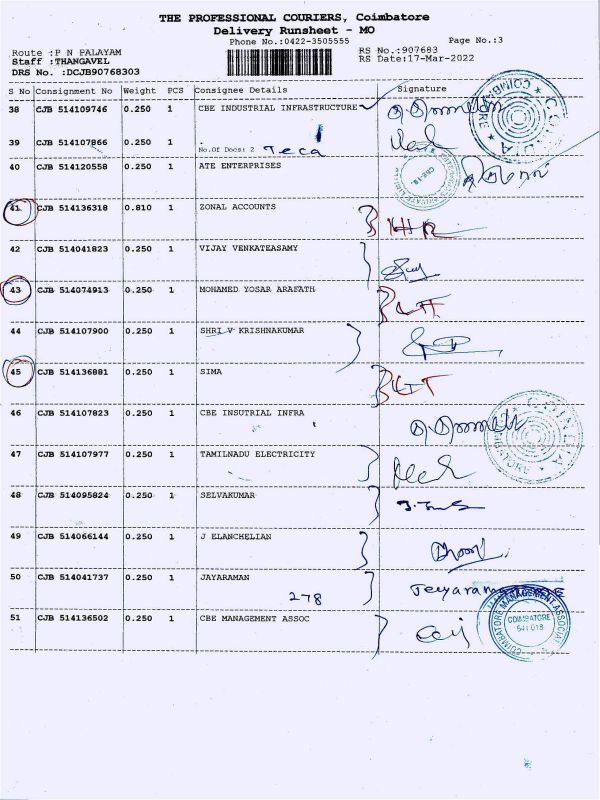 THE PROFESSIONAL COURIERS, Coimbatore
Delivery Runsheet - MO
Phone No.:0422-3505555
Page No.:3
Route :P N PALAYAM
RS No.:907683
Staff :THANGAVEL
RS Date:17-Mar-2022
DRS No. :DCJB90768303
S No Consignment No Weight PCS Consignee Details Signature
38 CJB 514109746 0.250 1 CBE INDUSTRIAL INFRASTRUCTURE
39 CJB 514107866 0.250 1 No.Of Docs: 2 Teca
40 CJB 514120558 0.250 1 ATE ENTERPRISES
41 CJB 514136318 0.810 1 ZONAL ACCOUNTS
42 CJB 514041823 0.250 1 VIJAY VENKATEASAMY
43 CJB 514074913 0.250 1 MOHAMED YOSAR ARAFATH
44 CJB 514107900 0.250 1 SHRI V KRISHNAKUMAR
45 CJB 514136881 0.250 1 SIMA
46 CJB 514107823 0.250 1 CBE INSUTRIAL INFRA
47 CJB 514107977 0.250 1 TAMILNADU ELECTRICITY
48 CJB 514095824 0.250 1 SELVAKUMAR
49 CJB 514066144 0.250 1 J ELANCHELIAN
50 CJB 514041737 0.250 1 JAYARAMAN
278
51 CJB 514136502 0.250 1 CBE MANAGEMENT ASSOC
COIMBATORE MANAGEMENT ASSOCIAT
COIMBATORE
641 018